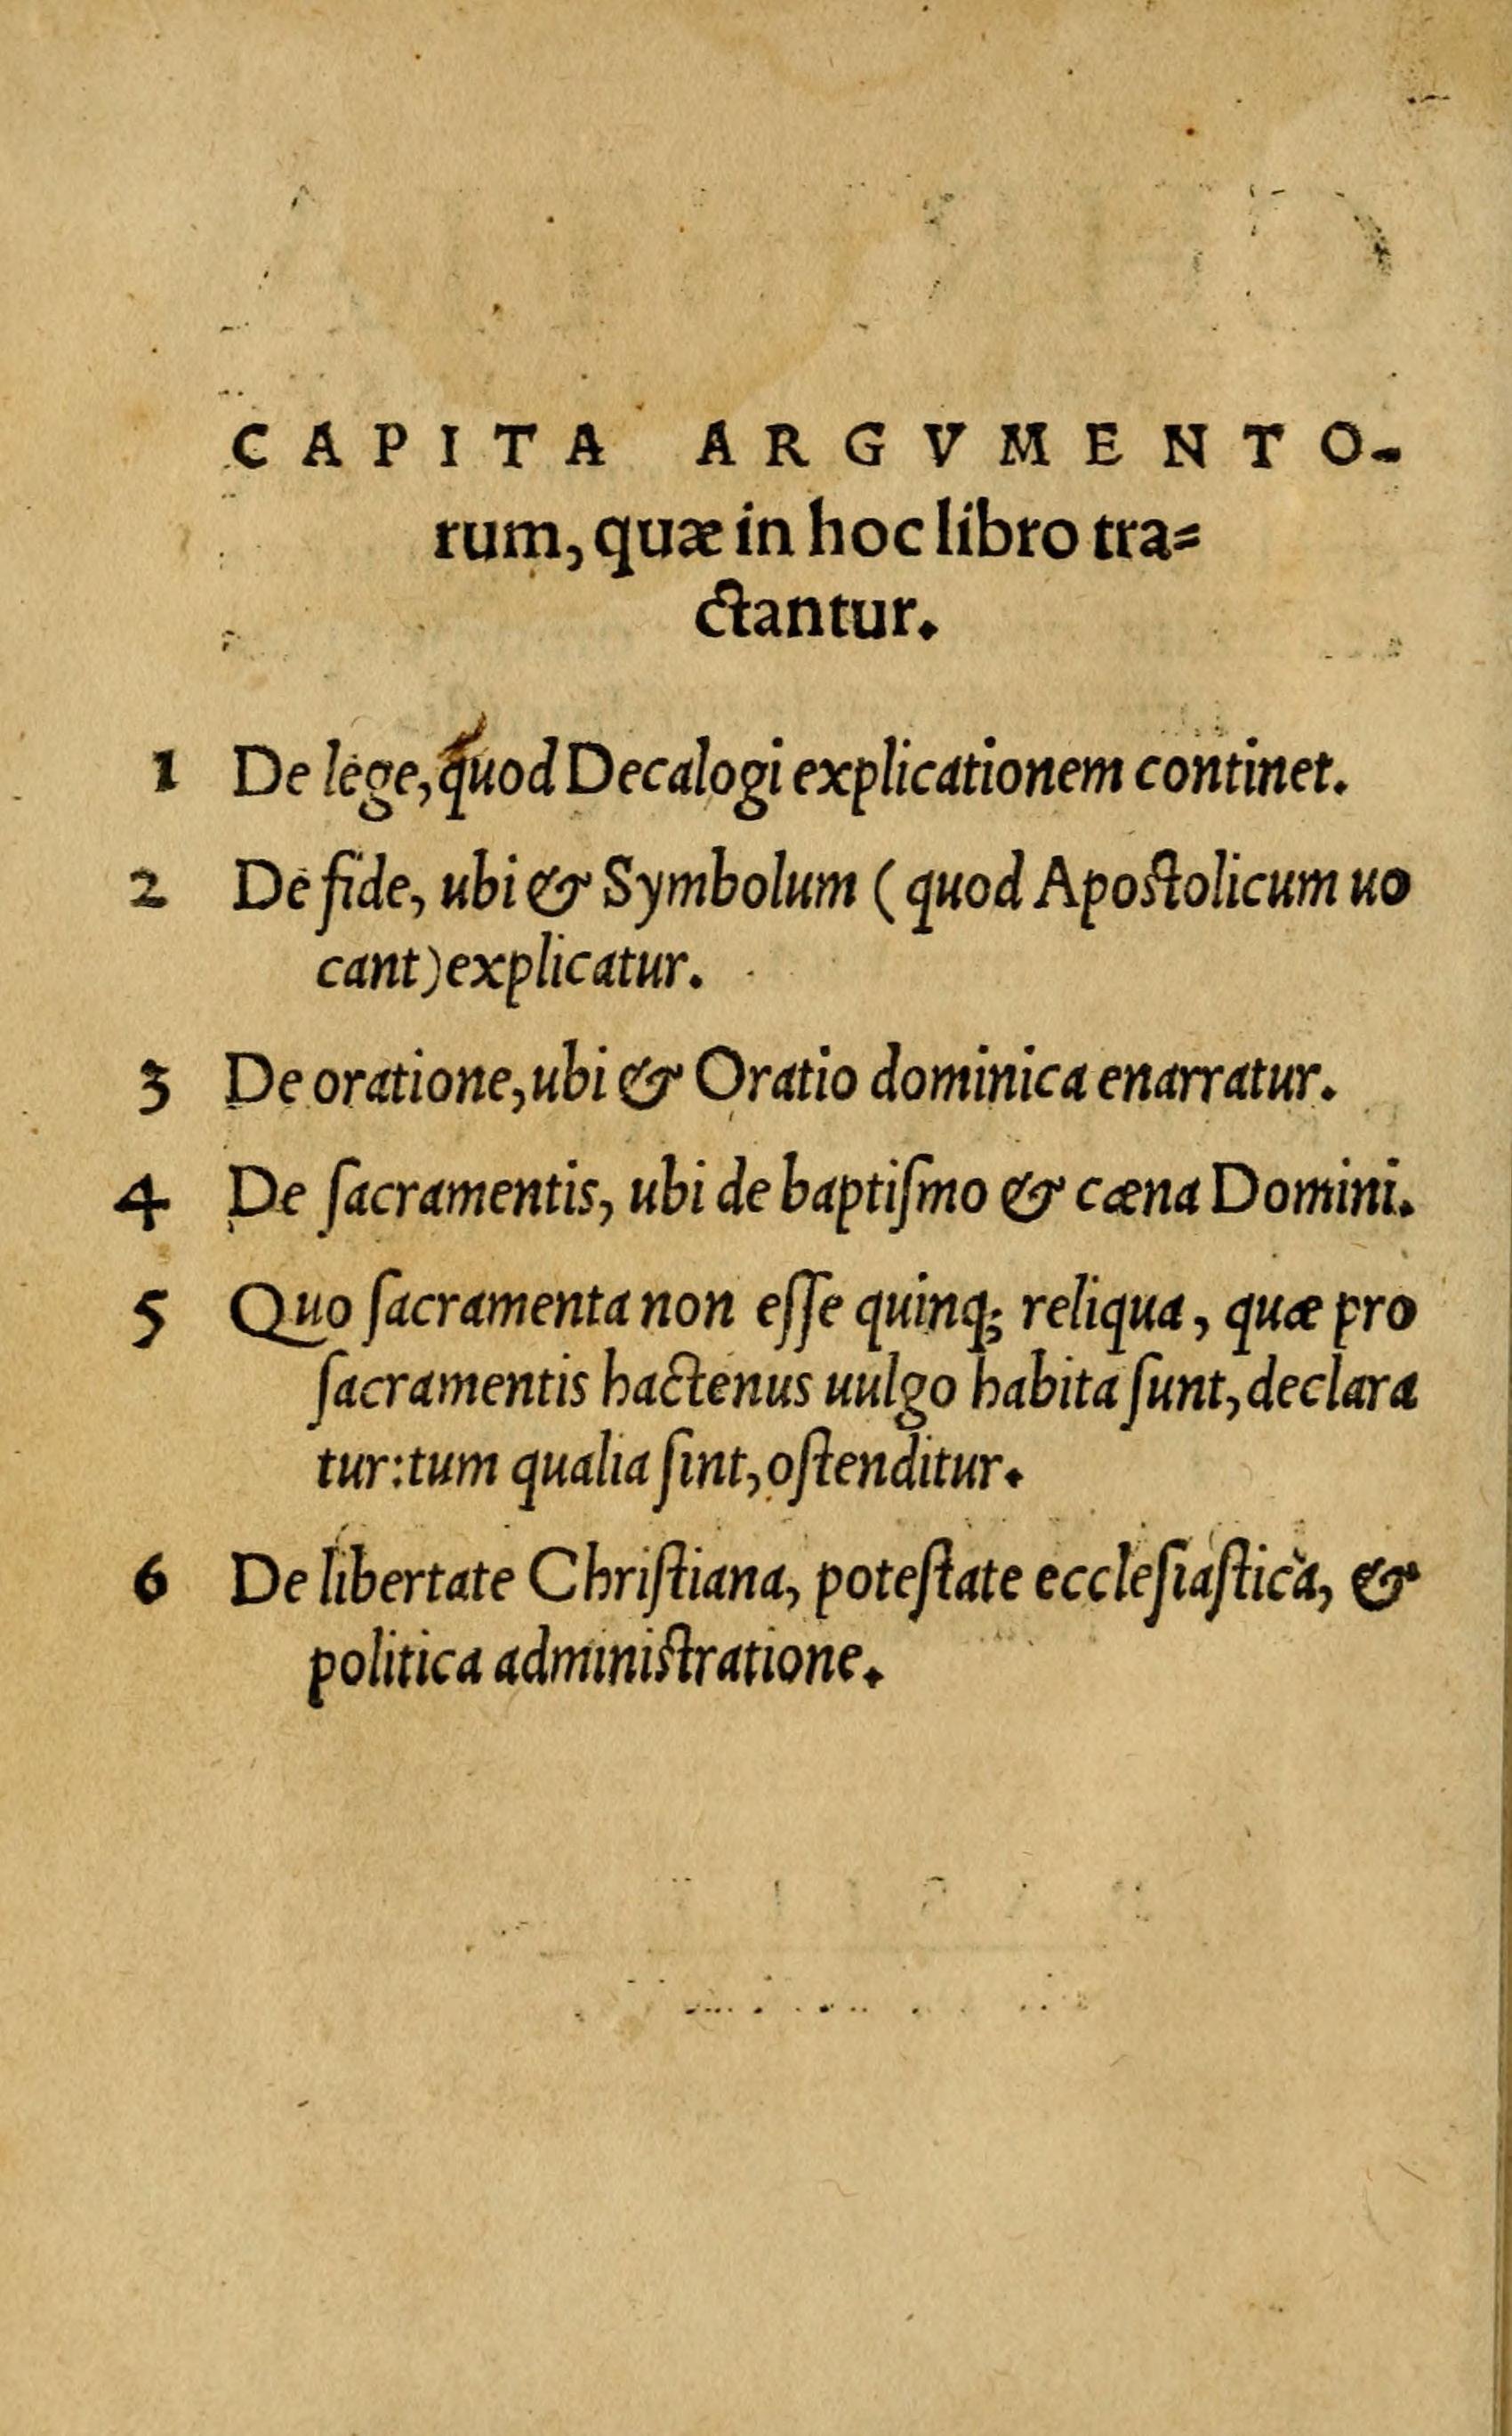 CAPITA ARGVMENTO-
rum, quæ in hoc libro tra=
ctantur.
1 De lege, quod Decalogi explicationem continet.
2 De fide, ubi & Symbolum ( quod Apostolicum uo
cant) explicatur.
3 De oratione, ubi & Oratio dominica enarratur.
4 De ſacramentis, ubi de baptiſmo & cæna Domini.
5 Quo ſacramenta non eſſe quinq; reliqua, quæ pro
ſacramentis hactenus uulgo habita ſunt, declara
tur: tum qualia ſint, oſtenditur.
6 De libertate Chriſtiana, poteſtate eccleſiaſtica, &
politica adminiſtratione.